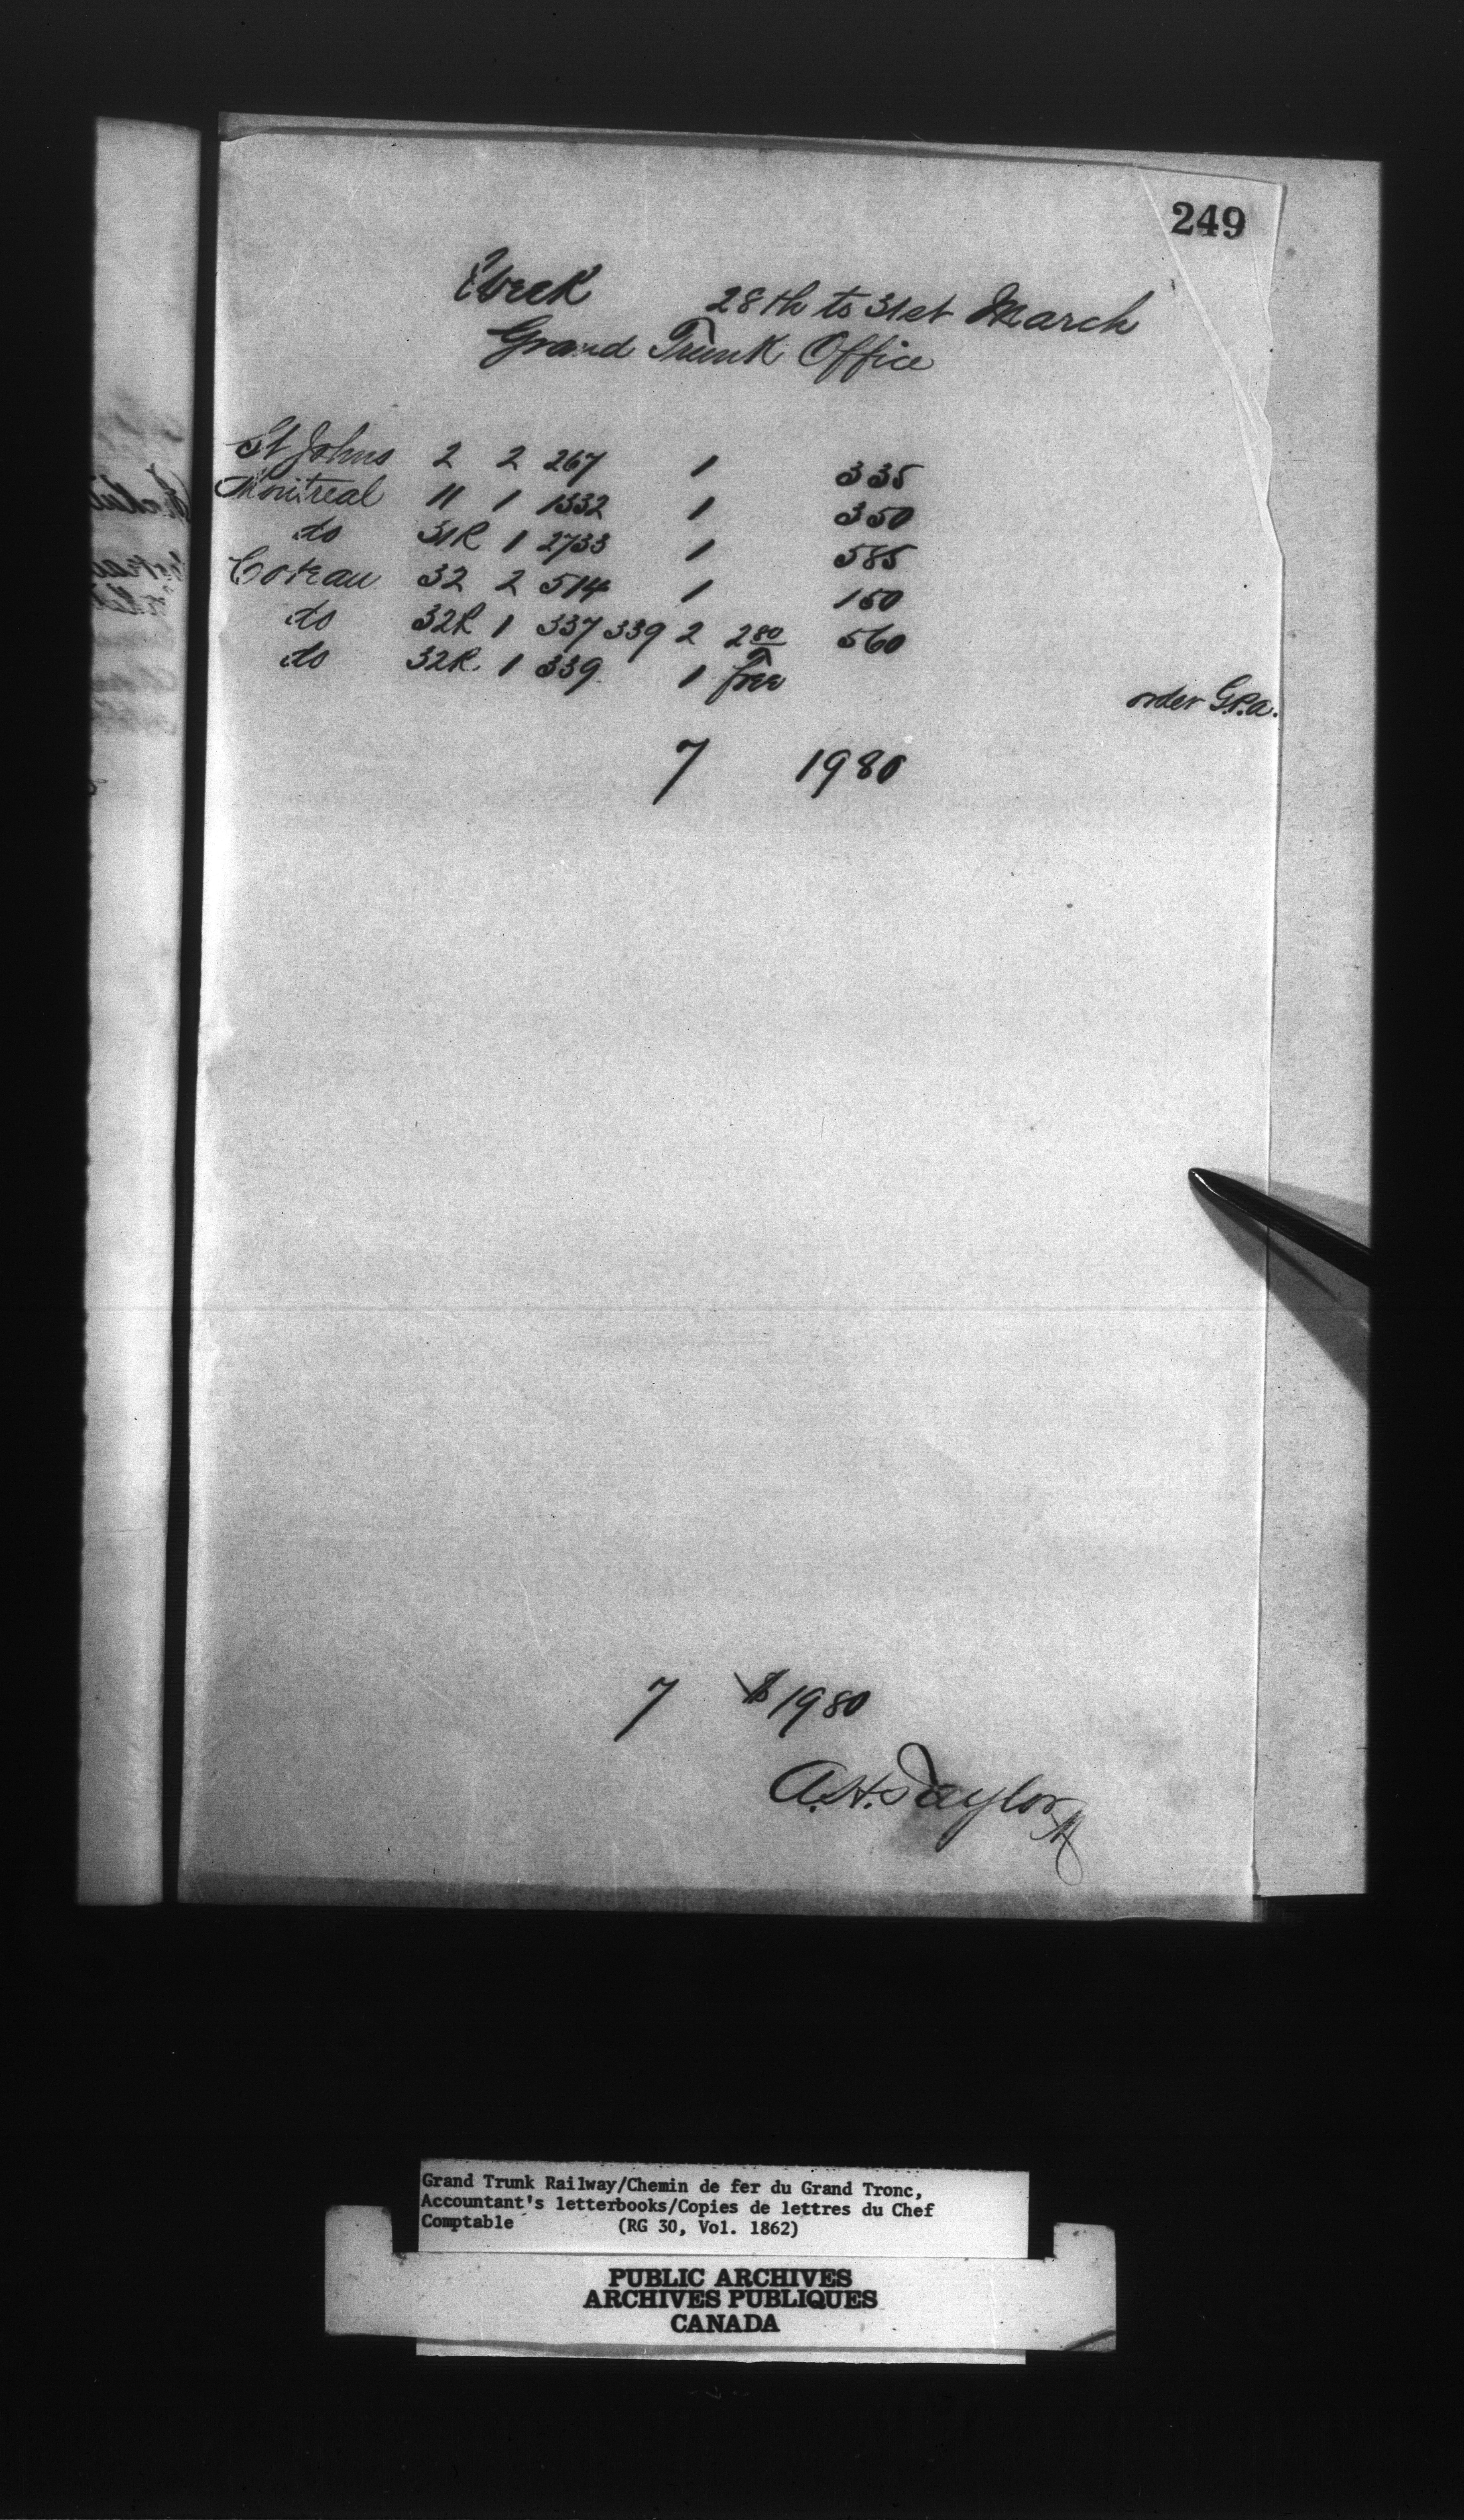 249
Week 28th to 31st March
Grand Trunk Office
St Johns 2 2 267 1 335
Montreal 11 1 1332 1 350
do 31R 1 2733 1 585
Coteau 32 2 514 1 150
do 32R 1 337 339 2 2 80 560
do 32R. 1 339. 1 Free order G.P.a.
7 1980
7 $ 1980
A.H. Taylor
Grand Trunk Railway/Chemin de fer du Grand Tronc,
Accountant's letterbooks/Copies de lettres du Chef
Comptable (RG 30, Vol. 1862)
PUBLIC ARCHIVES
ARCHIVES PUBLIQUES
CANADA